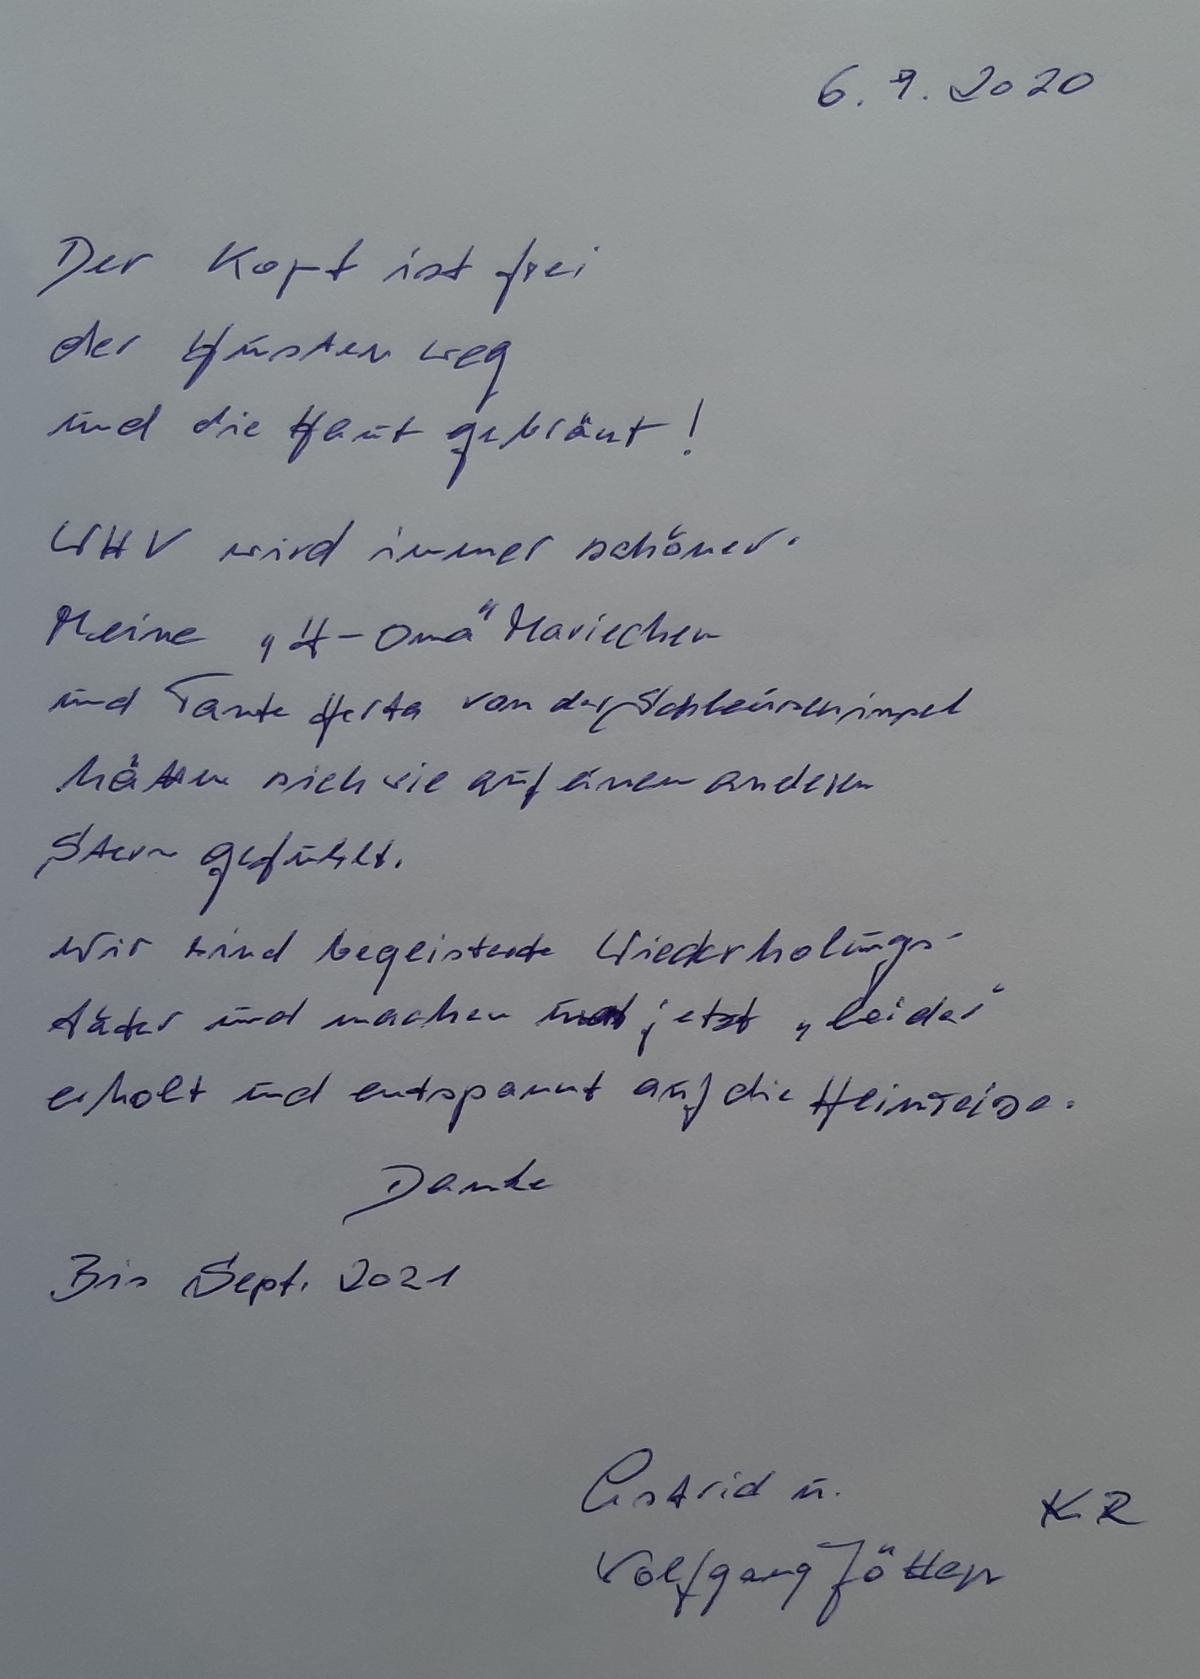 6. 9. 2020
Der Kopf ist frei
der Husten weg
und die Haut gebräut!
WHV wird immer schöner.
Meine „H-Oma" Mariechen
und Tante Herta von der Schleuseninsel
hätten sich wie auf einem anderen
Stern gefühlt.
Wir sind begeisterte Wiederholungs-
täter und machen jetzt „leider"
erholt und entspannt auf die Heimreise.
Danke
Bis Sept. 2021
Astrid u.
KR
Wolfgang